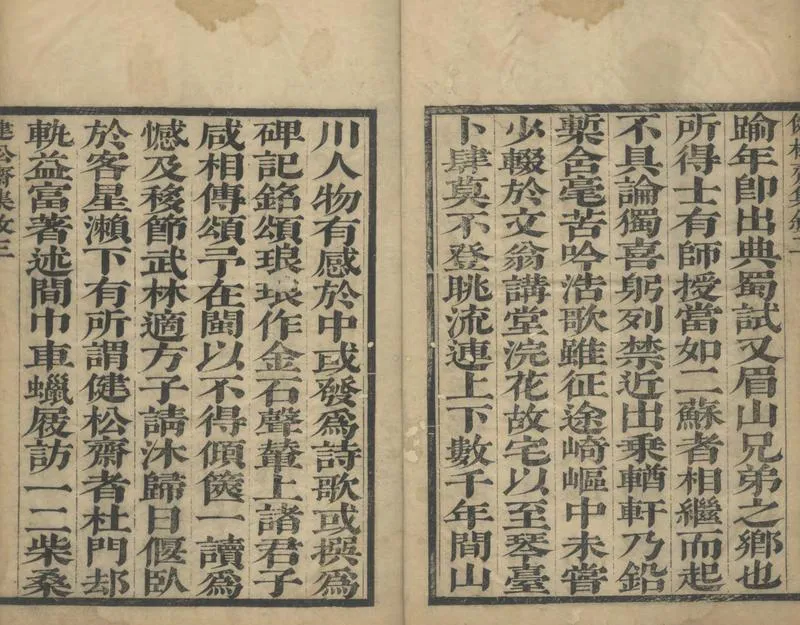 踰年卽出典蜀試又眉山兄弟之鄉也
所得士有師授當如二蘇者相繼而起
不具論獨喜躬列禁近出乗輶軒乃鉛
槧含毫苦吟浩歌雖征途崎嶇中未嘗
少輟於文翁講堂浣花故宅以至琴臺
卜肆莫不登眺流連上下數千年間山
川人物有感於中或發爲詩歌或撰爲
碑記銘頌琅琅作金石聲輦上諸君子
咸相傳頌予在閩以不得傾篋一讀爲
憾及移節武林適方子請沐歸日偃臥
於客星瀨下有所謂健松齋者杜門却
軌益富著述間巾車蠟屐訪一二柴桑
健松齋集